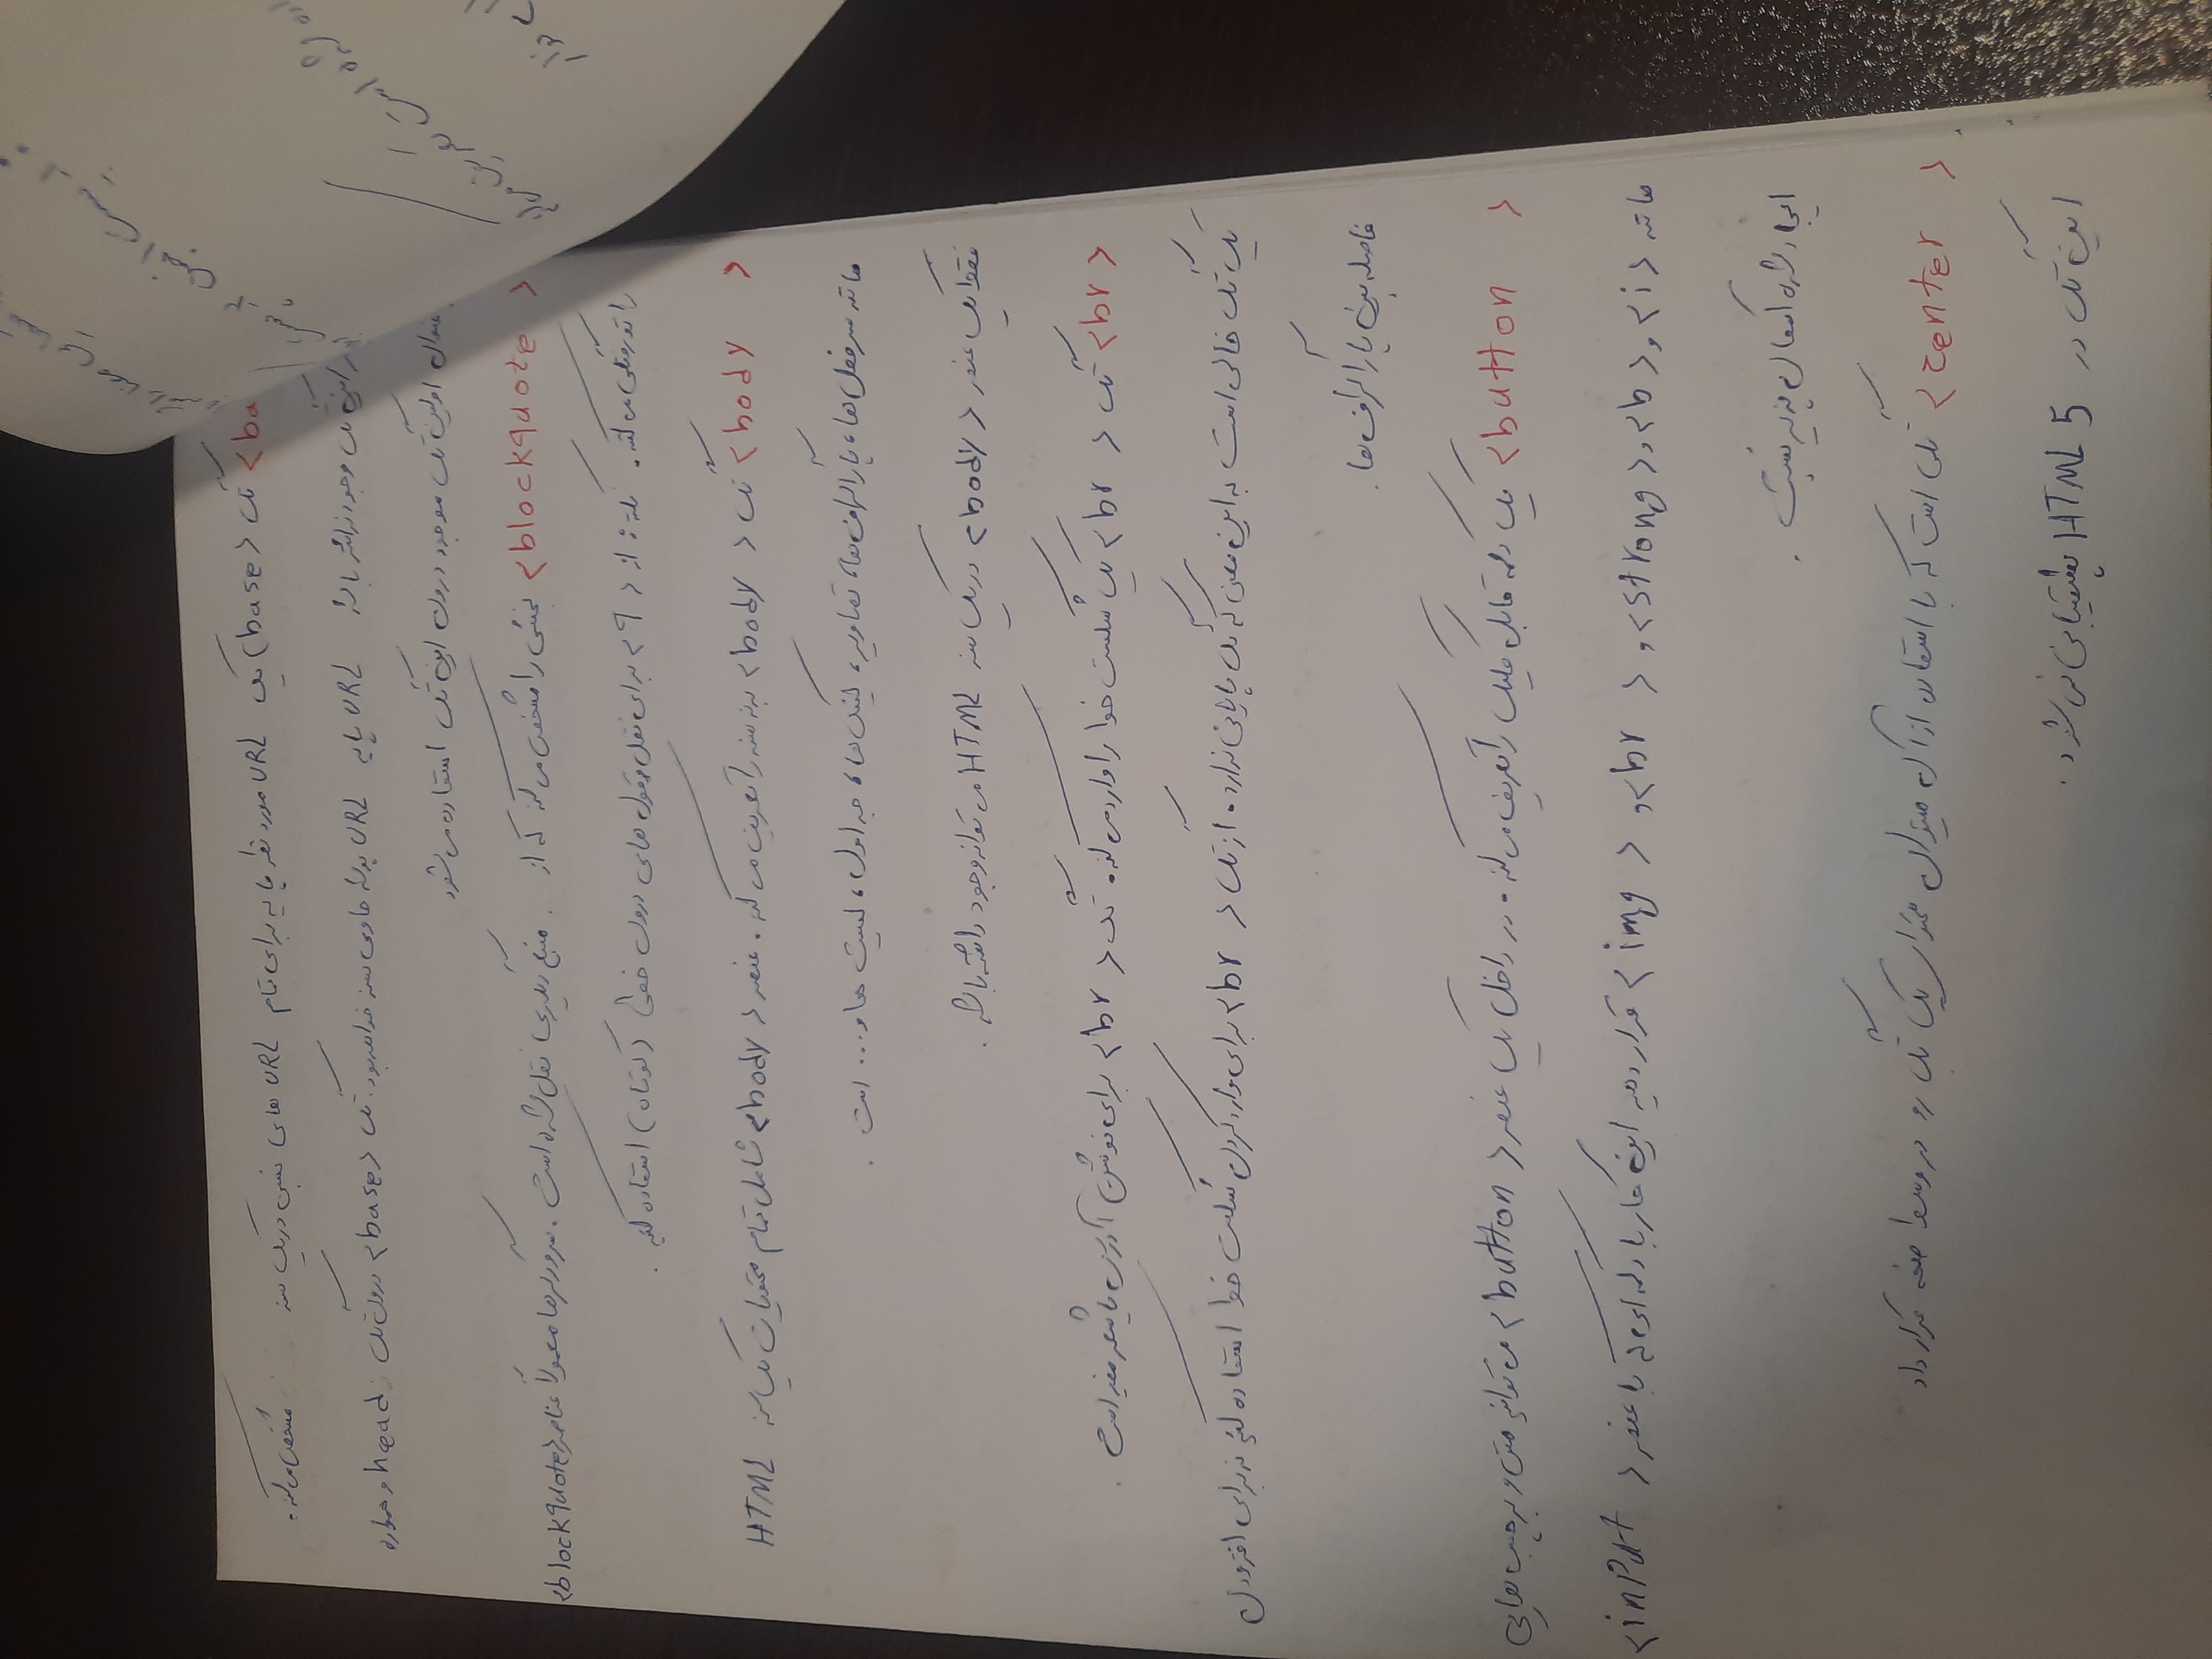 <ba تگ <base> یک URL مورد نظر پایه برای تمام URL های نسبی در یک سند مشخص می کند.
این تگ وجود نداشته باشد URL پایه URL پوشه حاوی سند خواهد بود. تگ <base> درون تگ head و همواره
بعنوان اولین تگ موجود درون این تگ استفاده می شود
<blockquote> بخشی را مشخص می کند که از منبع دیگری نقل شده است. مرورگرها معمولاً عناصر <blockquote>
را تورفتگی می کنند. نکته: از <q> برای نقل وقول های درون خطی (کوتاه) استفاده کنید.
<body> تگ <body> بدنه سند را تعریف می کند. عنصر <body> شامل تمام محتویات یک سند HTML
مانند سرفصل ها، پاراگراف ها، تصاویر، لینک ها، جداول، لیست ها و... است.
فقط یک عنصر <body> در یک سند HTML می تواند وجود داشته باشد.
<br> تگ <br> یک شکست خط را وارد می کند. تگ <br> برای نوشتن آدرس یا شعر مفید است.
یک تگ خالی است به این معنی که تگ پایانی ندارد. از تگ <br> برای وارد کردن شکست خط استفاده کنید نه برای افزودن
فاصله بین پاراگراف ها.
<button> یک دکمه قابل کلیک را تعریف می کند. در داخل یک عنصر <button> می توانید متن و برچسب هایی
مانند <i> و <b> و <strong> و <br> و <img> قرار دهید این کار با دکمه ای که با عنصر <input>
ایجاد شده امکان پذیر نیست.
<center> تگی است که با استفاده از آن میتوان محتوای یک تگ رو در وسط صفحه قرار داد
این تگ در HTML 5 پشتیبانی نمی شود.